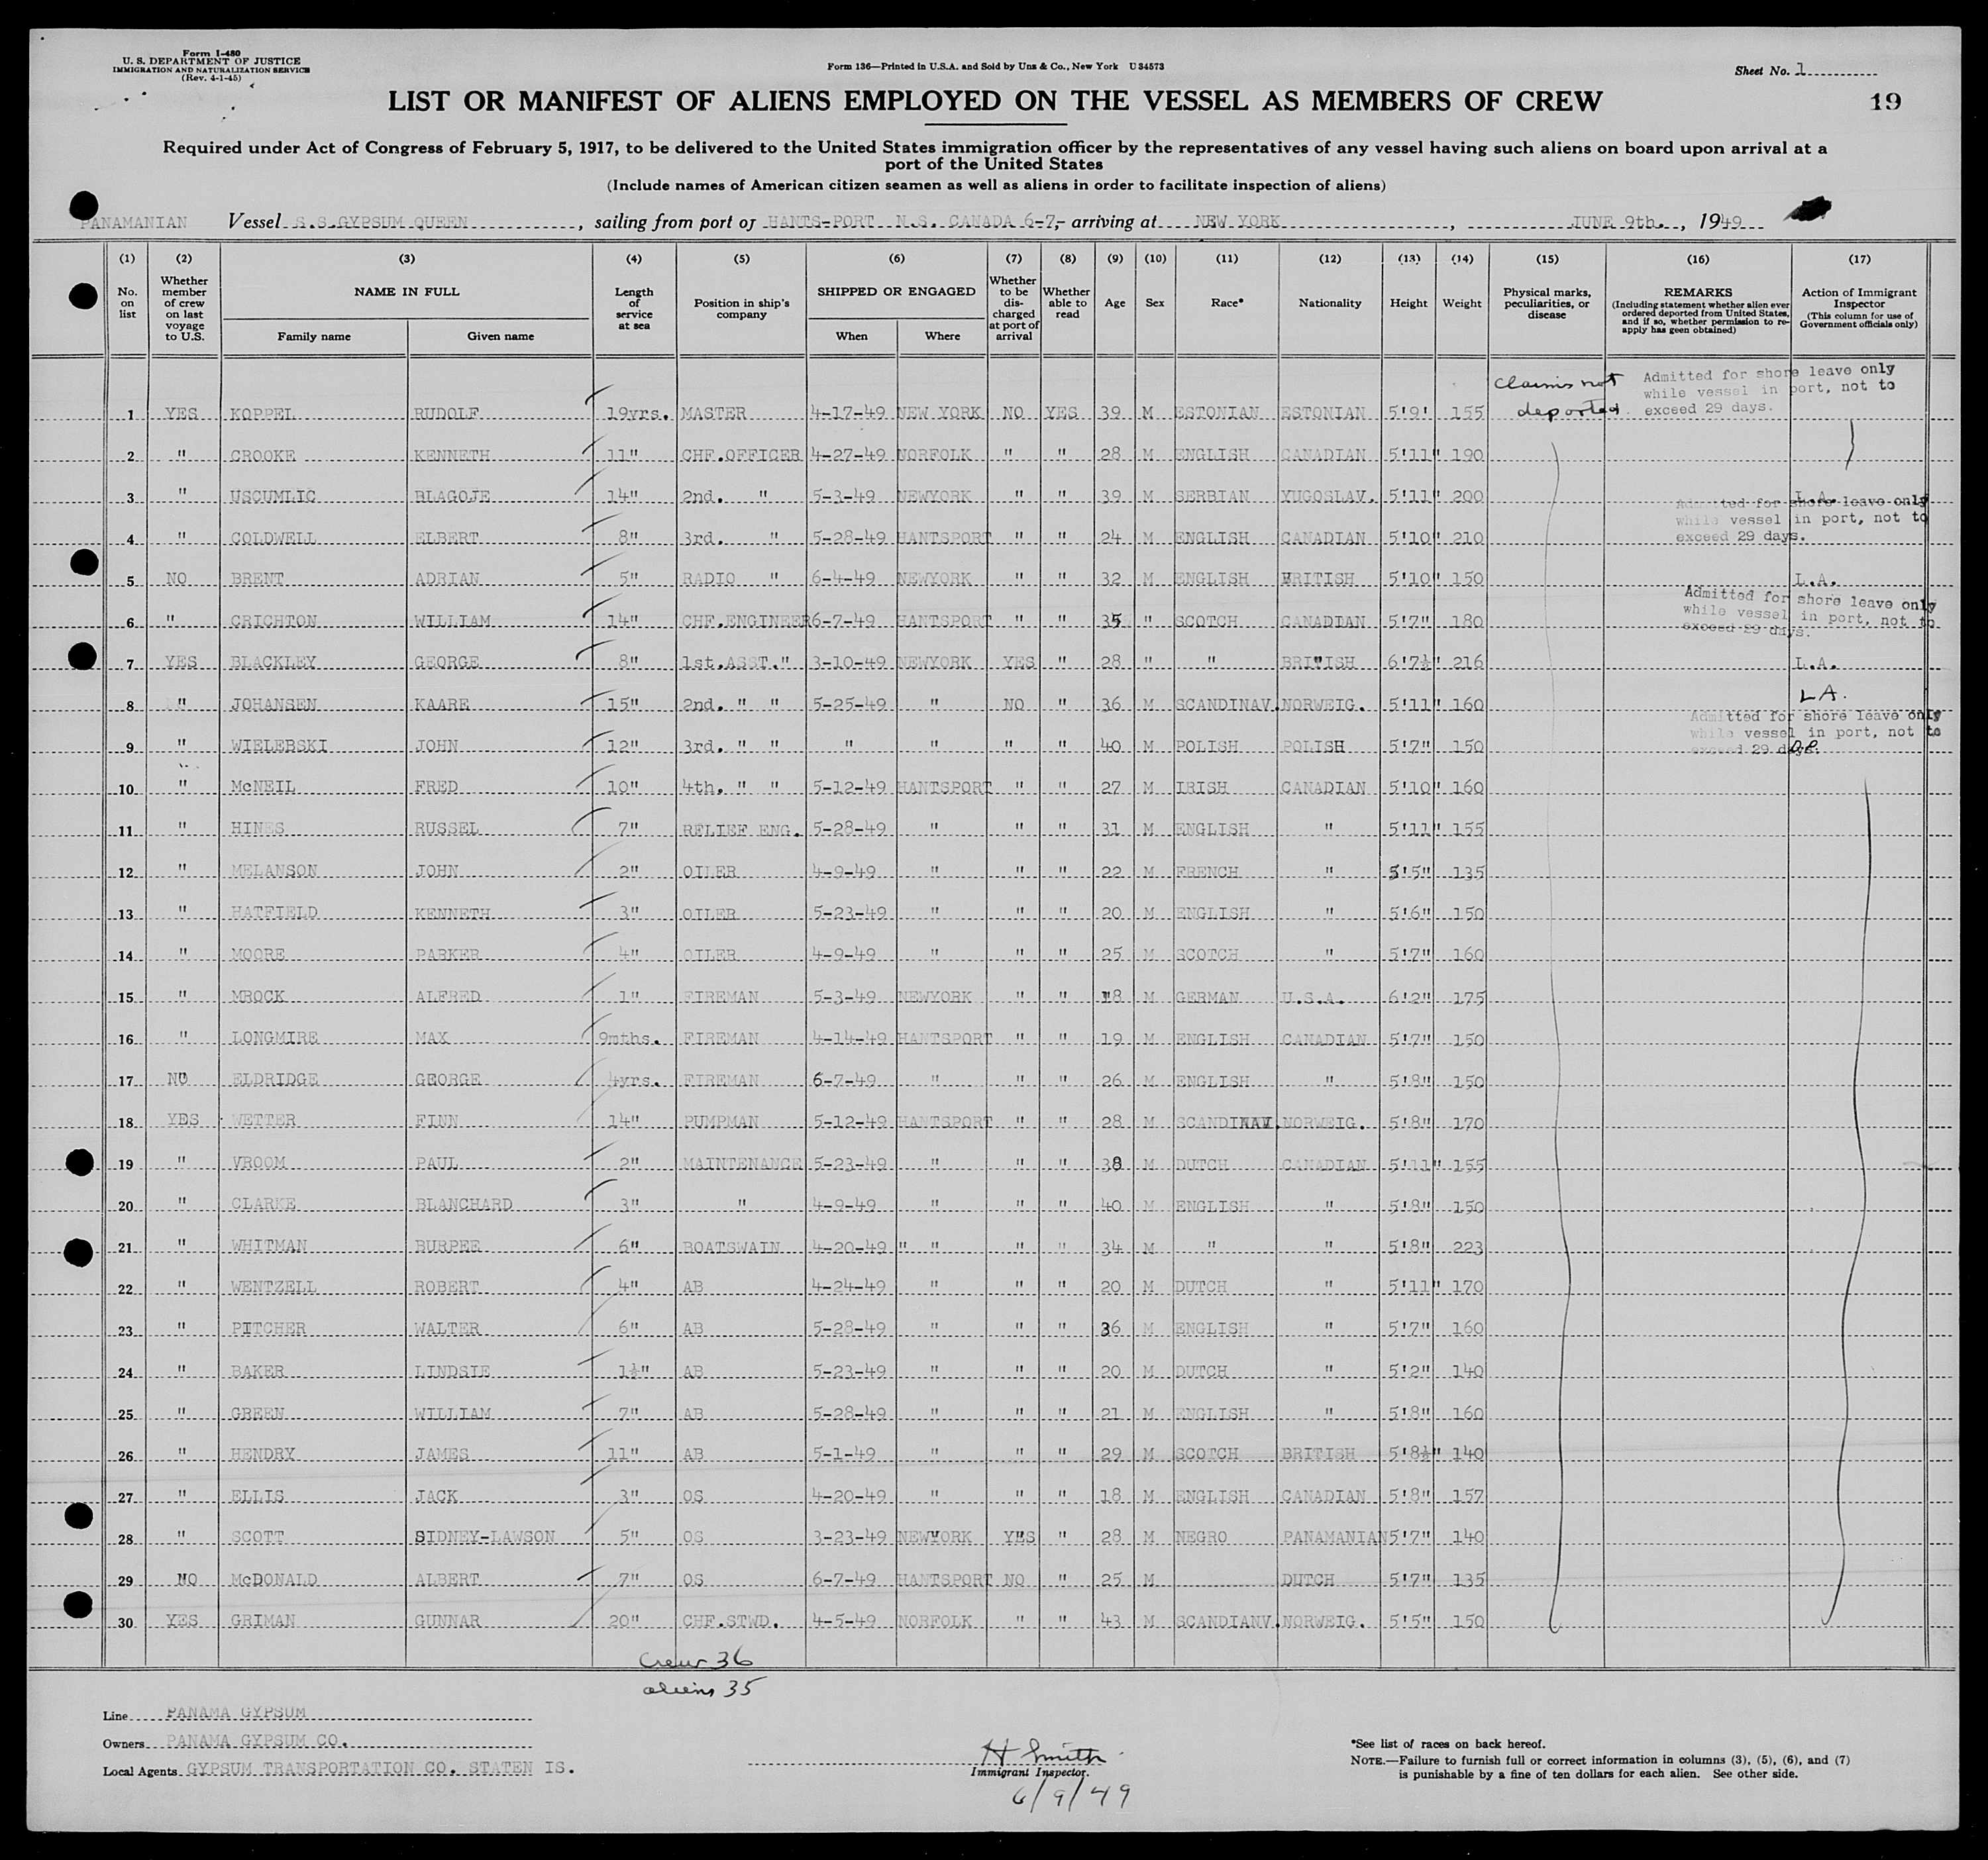 Form I-480
U. S. DEPARTMENT OF JUSTICE
IMMIGRATION AND NATURALIZATION SERVICE
(Rev. 4-1-45)
Form 136—Printed in U.S.A. and Sold by Unz & Co., New York U 34573
Sheet No. 1
LIST OR MANIFEST OF ALIENS EMPLOYED ON THE VESSEL AS MEMBERS OF CREW
19
Required under Act of Congress of February 5, 1917, to be delivered to the United States immigration officer by the representatives of any vessel having such aliens on board upon arrival at a
port of the United States
(Include names of American citizen seamen as well as aliens in order to facilitate inspection of aliens)
PANAMANIAN Vessel S.S.GYPSUM QUEEN, sailing from port of HANTS-PORT N.S. CANADA 6-7,- arriving at NEW YORK, JUNE 9th., 1949
(1) (2) (3) (4) (5) (6) (7) (8) (9) (10) (11) (12) (13) (14) (15) (16) (17)
No. on list
Whether member of crew on last voyage to U.S.
NAME IN FULL
Family name Given name
Length of service at sea
Position in ship's company
SHIPPED OR ENGAGED
When Where
Whether to be discharged at port of arrival
Whether able to read
Age Sex Race* Nationality Height Weight
Physical marks, peculiarities, or disease
REMARKS
(Including statement whether alien ever ordered deported from United States, and if so, whether permission to re-apply has geen obtained)
Action of Immigrant Inspector
(This column for use of Government officials only)
claims not deported
Admitted for shore leave only
while vessel in port, not to
exceed 29 days.
1 YES KOPPEL RUDOLF 19yrs. MASTER 4-17-49 NEW YORK NO YES 39 M ESTONIAN ESTONIAN 5'9' 155
2 " CROOKE KENNETH 11" CHF.OFFICER 4-27-49 NORFOLK " " 28 M ENGLISH CANADIAN 5'11" 190
3 " USCUMLIC BLAGOJE 14" 2nd. " 5-3-49 NEWYORK " " 39 M SERBIAN YUGOSLAV. 5'11" 200 L.A.
Admitted for shore leave only
while vessel in port, not to
exceed 29 days.
4 " COLDWELL ELBERT 8" 3rd. " 5-28-49 HANTSPORT " " 24 M ENGLISH CANADIAN 5'10" 210
5 NO BRENT ADRIAN 5" RADIO " 6-4-49 NEWYORK " " 32 M ENGLISH BRITISH 5'10" 150 L.A.
Admitted for shore leave only
while vessel in port, not to
exceed 29 days.
6 " CRICHTON WILLIAM 14" CHF.ENGINEER 6-7-49 HANTSPORT " " 35 " SCOTCH CANADIAN 5'7" 180
7 YES BLACKLEY GEORGE 8" 1st.ASST." 3-10-49 NEWYORK YES " 28 " " BRITISH 6'7½" 216 L.A.
8 " JOHANSEN KAARE 15" 2nd. " " 5-25-49 " NO " 36 M SCANDINAV. NORWEIG. 5'11" 160 LA.
Admitted for shore leave only
while vessel in port, not to
exceed 29 days.
9 " WIELEBSKI JOHN 12" 3rd. " " " " " " 40 M POLISH POLISH 5'7" 150
10 " McNEIL FRED 10" 4th. " " 5-12-49 HANTSPORT " " 27 M IRISH CANADIAN 5'10" 160
11 " HINES RUSSEL 7" RELIEF ENG. 5-28-49 " " " 31 M ENGLISH " 5'11" 155
12 " MELANSON JOHN 2" OILER 4-9-49 " " " 22 M FRENCH " 5'5" 135
13 " HATFIELD KENNETH 3" OILER 5-23-49 " " " 20 M ENGLISH " 5'6" 150
14 " MOORE PARKER 4" OILER 4-9-49 " " " 25 M SCOTCH " 5'7" 160
15 " MROCK ALFRED 1" FIREMAN 5-3-49 NEWYORK " " 18 M GERMAN U.S.A. 6'2" 175
16 " LONGMIRE MAX 9mths. FIREMAN 4-14-49 HANTSPORT " " 19 M ENGLISH CANADIAN 5'7" 150
17 NO ELDRIDGE GEORGE 4yrs. FIREMAN 6-7-49 " " " 26 M ENGLISH " 5'8" 150
18 YES WETTER FINN 14" PUMPMAN 5-12-49 HANTSPORT " " 28 M SCANDINAV. NORWEIG. 5'8" 170
19 " VROOM PAUL 2" MAINTENANCE 5-23-49 " " " 38 M DUTCH CANADIAN 5'11" 155
20 " CLARKE BLANCHARD 3" " 4-9-49 " " " 40 M ENGLISH " 5'8" 150
21 " WHITMAN BURPEE 6" BOATSWAIN 4-20-49 " " " " 34 M " " 5'8" 223
22 " WENTZELL ROBERT 4" AB 4-24-49 " " " 20 M DUTCH " 5'11" 170
23 " PITCHER WALTER 6" AB 5-28-49 " " " 36 M ENGLISH " 5'7" 160
24 " BAKER LINDSIE 1½" AB 5-23-49 " " " 20 M DUTCH " 5'2" 140
25 " GREEN WILLIAM 7" AB 5-28-49 " " " 21 M ENGLISH " 5'8" 160
26 " HENDRY JAMES 11" AB 5-1-49 " " " 29 M SCOTCH BRITISH 5'8½" 140
27 " ELLIS JACK 3" OS 4-20-49 " " " 18 M ENGLISH CANADIAN 5'8" 157
28 " SCOTT SIDNEY-LAWSON 5" OS 3-23-49 NEWYORK YES " 28 M NEGRO PANAMANIAN 5'7" 140
29 NO McDONALD ALBERT 7" OS 6-7-49 HANTSPORT NO " 25 M DUTCH 5'7" 135
30 YES GRIMAN GUNNAR 20" CHF.STWD. 4-5-49 NORFOLK " " 43 M SCANDIANV. NORWEIG. 5'5" 150
Crew 36
aliens 35
Line PANAMA GYPSUM
Owners PANAMA GYPSUM CO.
Local Agents GYPSUM TRANSPORTATION CO. STATEN IS.
H Smith
Immigrant Inspector.
6/9/49
*See list of races on back hereof.
NOTE.—Failure to furnish full or correct information in columns (3), (5), (6), and (7)
is punishable by a fine of ten dollars for each alien. See other side.